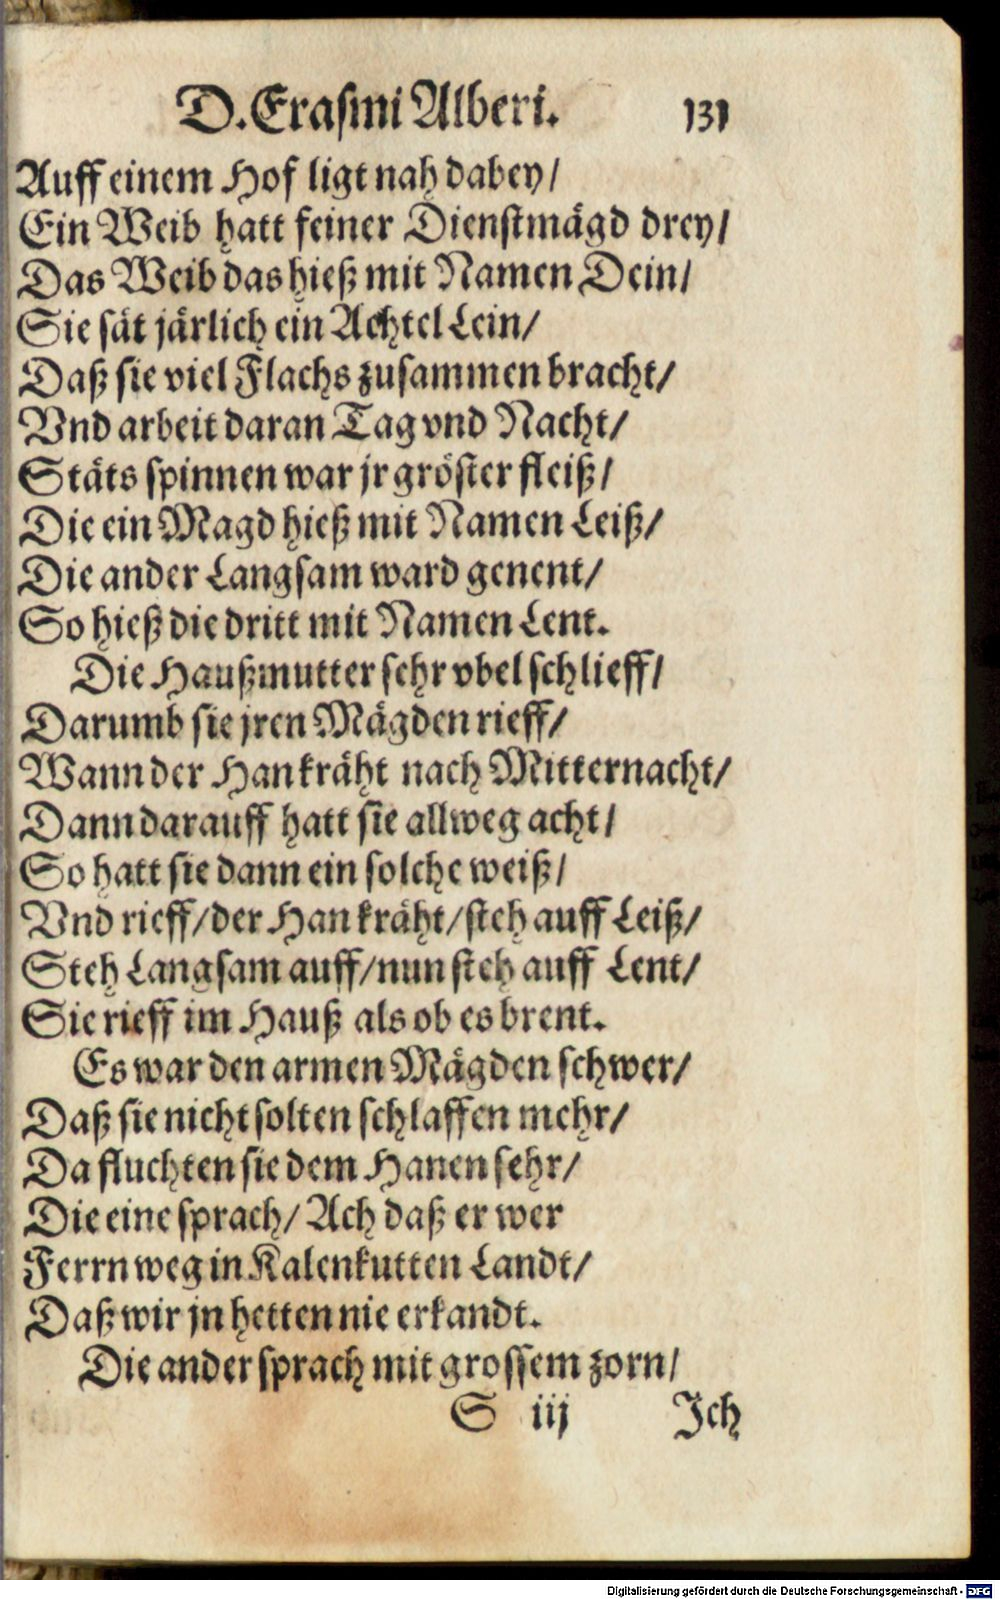 D. Erasmi Alberi. 131
Auff einem Hof ligt nah dabey/
Ein Weib hatt feiner Dienstmägd drey/
Das Weib das hieß mit Namen Dein/
Sie sät järlich ein Achtel Lein/
Daß sie viel Flachs zusammen bracht/
Vnd arbeit daran Tag vnd Nacht/
Stäts spinnen war jr gröster fleiß/
Die ein Magd hieß mit Namen Leiß/
Die ander Langsam ward genent/
So hieß die dritt mit Namen Lent.
Die Haußmutter sehr vbel schlieff/
Darumb sie jren Mägden rieff/
Wann der Han kräht nach Mitternacht/
Dann darauff hatt sie allweg acht/
So hatt sie dann ein solche weiß/
Vnd rieff/ der Han kräht/ steh auff Leiß/
Steh Langsam auff/ nun steh auff Lent/
Sie rieff im Hauß als ob es brent.
Es war den armen Mägden schwer/
Daß sie nicht solten schlaffen mehr/
Da fluchten sie dem Hanen sehr/
Die eine sprach/ Ach daß er wer
Ferrn weg in Kalenkutten Landt/
Daß wir jn hetten nie erkandt.
Die ander sprach mit grossem zorn/
S iij Jch
Digitalisierung gefördert durch die Deutsche Forschungsgemeinschaft - DFG